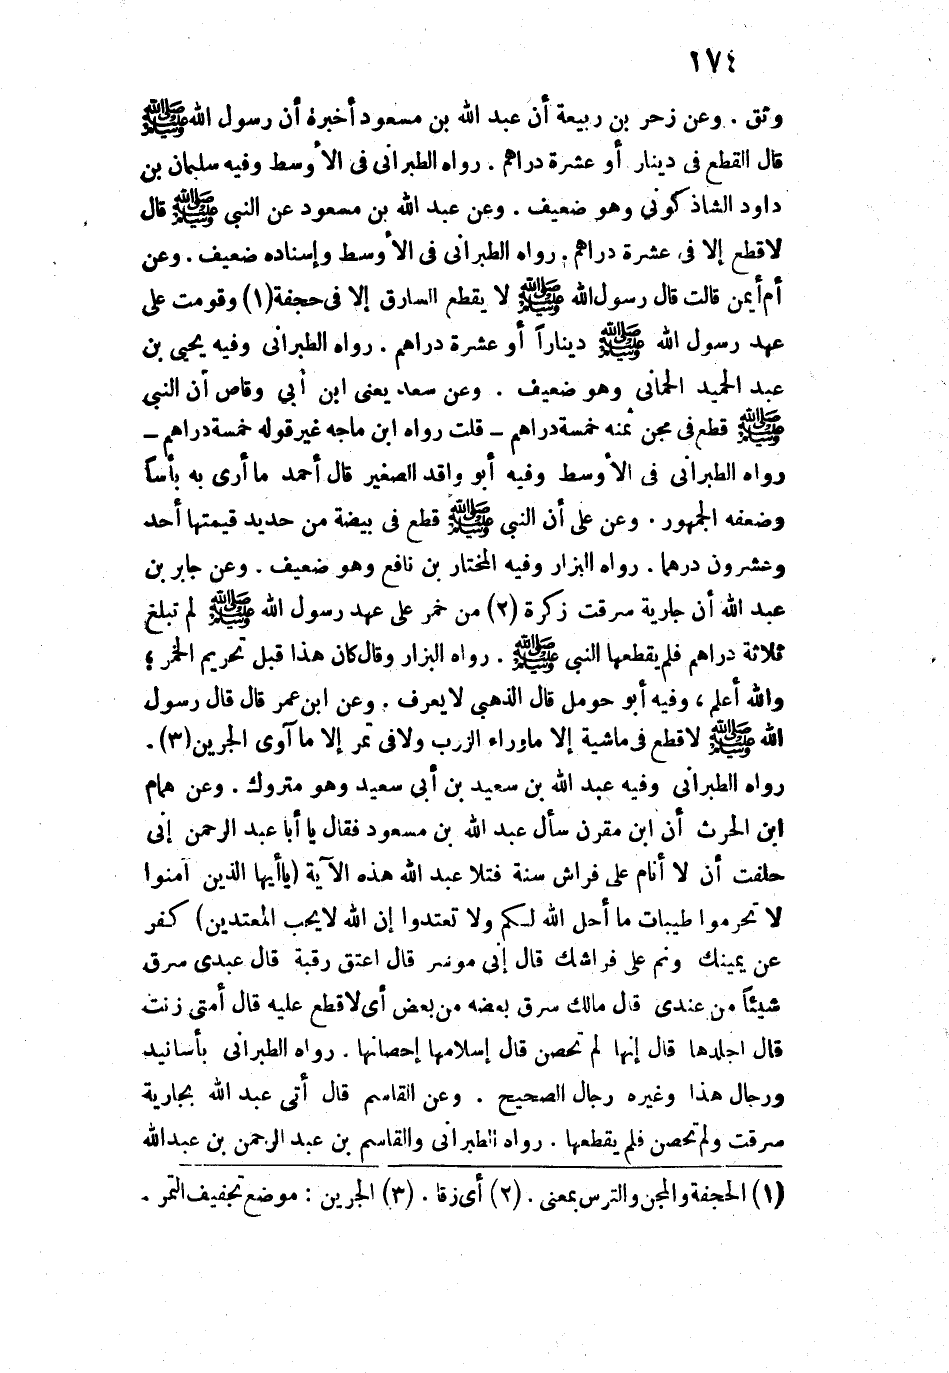 ٢٧٤
وثق . وعن زحر بن ربيعة أن عبد الله بن مسعود أخبره أن رسول الله ﷺ
قال القطع فى دينار أو عشرة دراهم . رواه الطبرانى فى الأوسط وفيه سلمان بن
داود الشاذكونى وهو ضعيف . وعن عبد الله بن مسعود عن النبي ﷺ قال
لاقطع إلا فى عشرة دراهم . رواه الطبرانى فى الأوسط وإسناده ضعيف . وعن
أم أيمن قالت قال رسول الله ﷺ لا يقطع السارق إلا فى حجفة (١) وقومت على
عهد رسول الله ﷺ ديناراً أو عشرة دراهم . رواه الطبرانى وفيه يحيى بن
عبد الحميد الحمانى وهو ضعيف . وعن سعد يعنى ابن أبي وقاص أن النبي
ﷺ قطع فى مجن ثمنه خمسة دراهم ــ قلت رواه ابن ماجه غير قوله خمسة دراهم ــ
رواه الطبرانى فى الأوسط وفيه أبو واقد الصغير قال أحمد ما أرى به بأساً
وضعفه الجمهور . وعن على أن النبي ﷺ قطع فى بيضة من حديد قيمتها أحد
وعشرون درهما . رواه البزار وفيه المختار بن نافع وهو ضعيف . وعن جابر بن
عبد الله أن جارية سرقت زكرة (٢) من خمر على عهد رسول الله ﷺ لم تبلغ
ثلاثة دراهم فلم يقطعها النبي ﷺ . رواه البزار وقال كان هذا قبل تحريم الخمر ؛
والله أعلم ، وفيه أبو حومل قال الذهبي لا يعرف . وعن ابن عمر قال قال رسول
الله ﷺ لاقطع فى ماشية إلا ماوراء الزرب ولا فى تمر إلا ما آوى الجرين (٣) .
رواه الطبرانى وفيه عبد الله بن سعيد بن أبي سعيد وهو متروك . وعن همام
ابن الحرث أن ابن مقرن سأل عبد الله بن مسعود فقال يا أبا عبد الرحمن إنى
حلفت أن لا أنام على فراش سنة فتلا عبد الله هذه الآية (ياأيها الذين آمنوا
لا تحرموا طيبات ما أحل الله لكم ولا تعتدوا إن الله لايحب المعتدين) كفر
عن يمينك ونم على فراشك قال إنى موسر قال اعتق رقبة قال عبدى سرق
شيئاً من عندى قال مالك سرق بعضه من بعض أى لاقطع عليه قال أمتى زنت
قال اجلدها قال إنها لم تحصن قال إسلامها إحصانها . رواه الطبرانى بأسانيد
ورجال هذا وغيره رجال الصحيح . وعن القاسم قال أتى عبد الله بجارية
سرقت ولم تحصن فلم يقطعها . رواه الطبرانى والقاسم بن عبد الرحمن بن عبدالله
(١) الحجفة والمجن والترس بمعنى . (٢) أى زقا . (٣) الجرين : موضع تجفيف التمر .